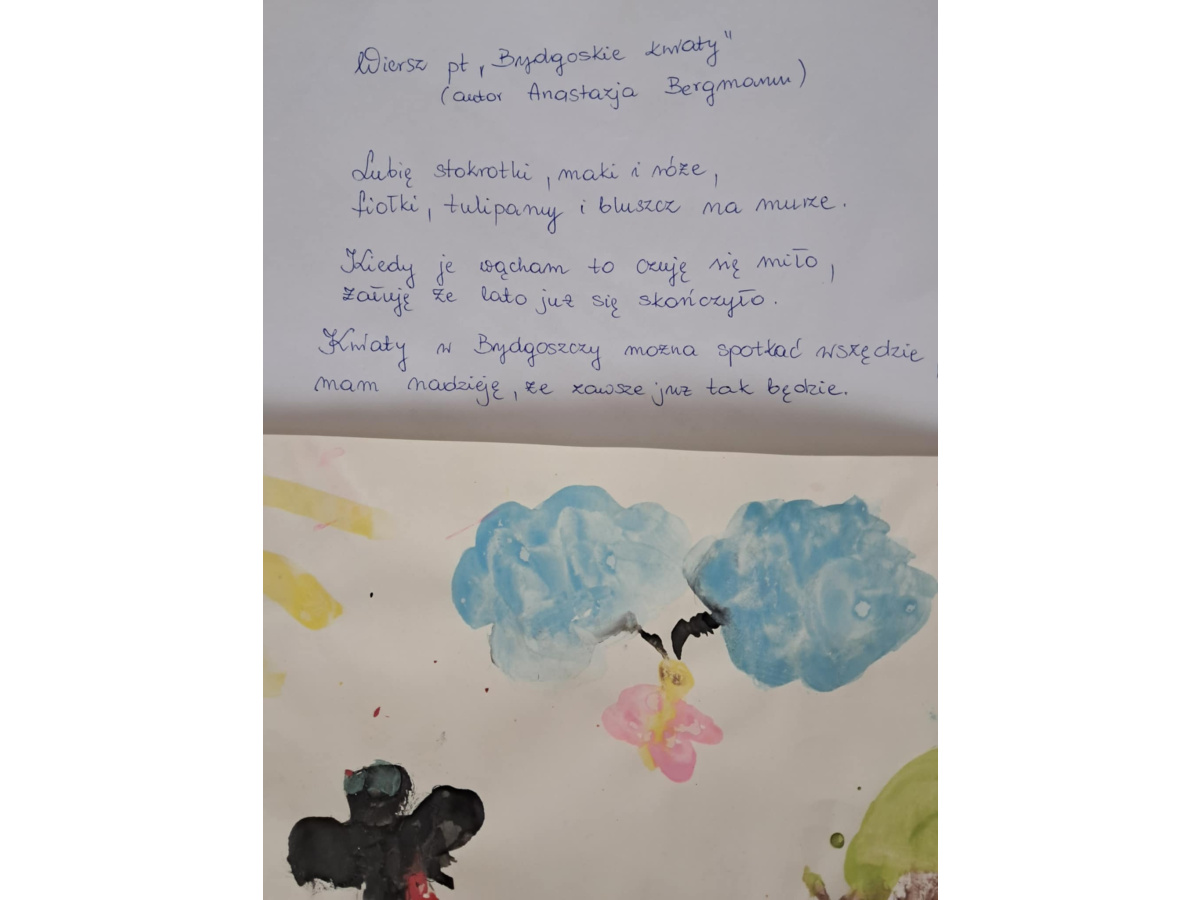 Wiersz pt „Bydgoskie kwiaty"
(autor Anastazja Bergmann)
Lubię stokrotki, maki i róże,
fiołki, tulipany i bluszcz na murze.
Kiedy je wącham to czuję się miło,
żałuję że lato już się skończyło.
Kwiaty w Bydgoszczy można spotkać wszędzie,
mam nadzieję, że zawsze już tak będzie.